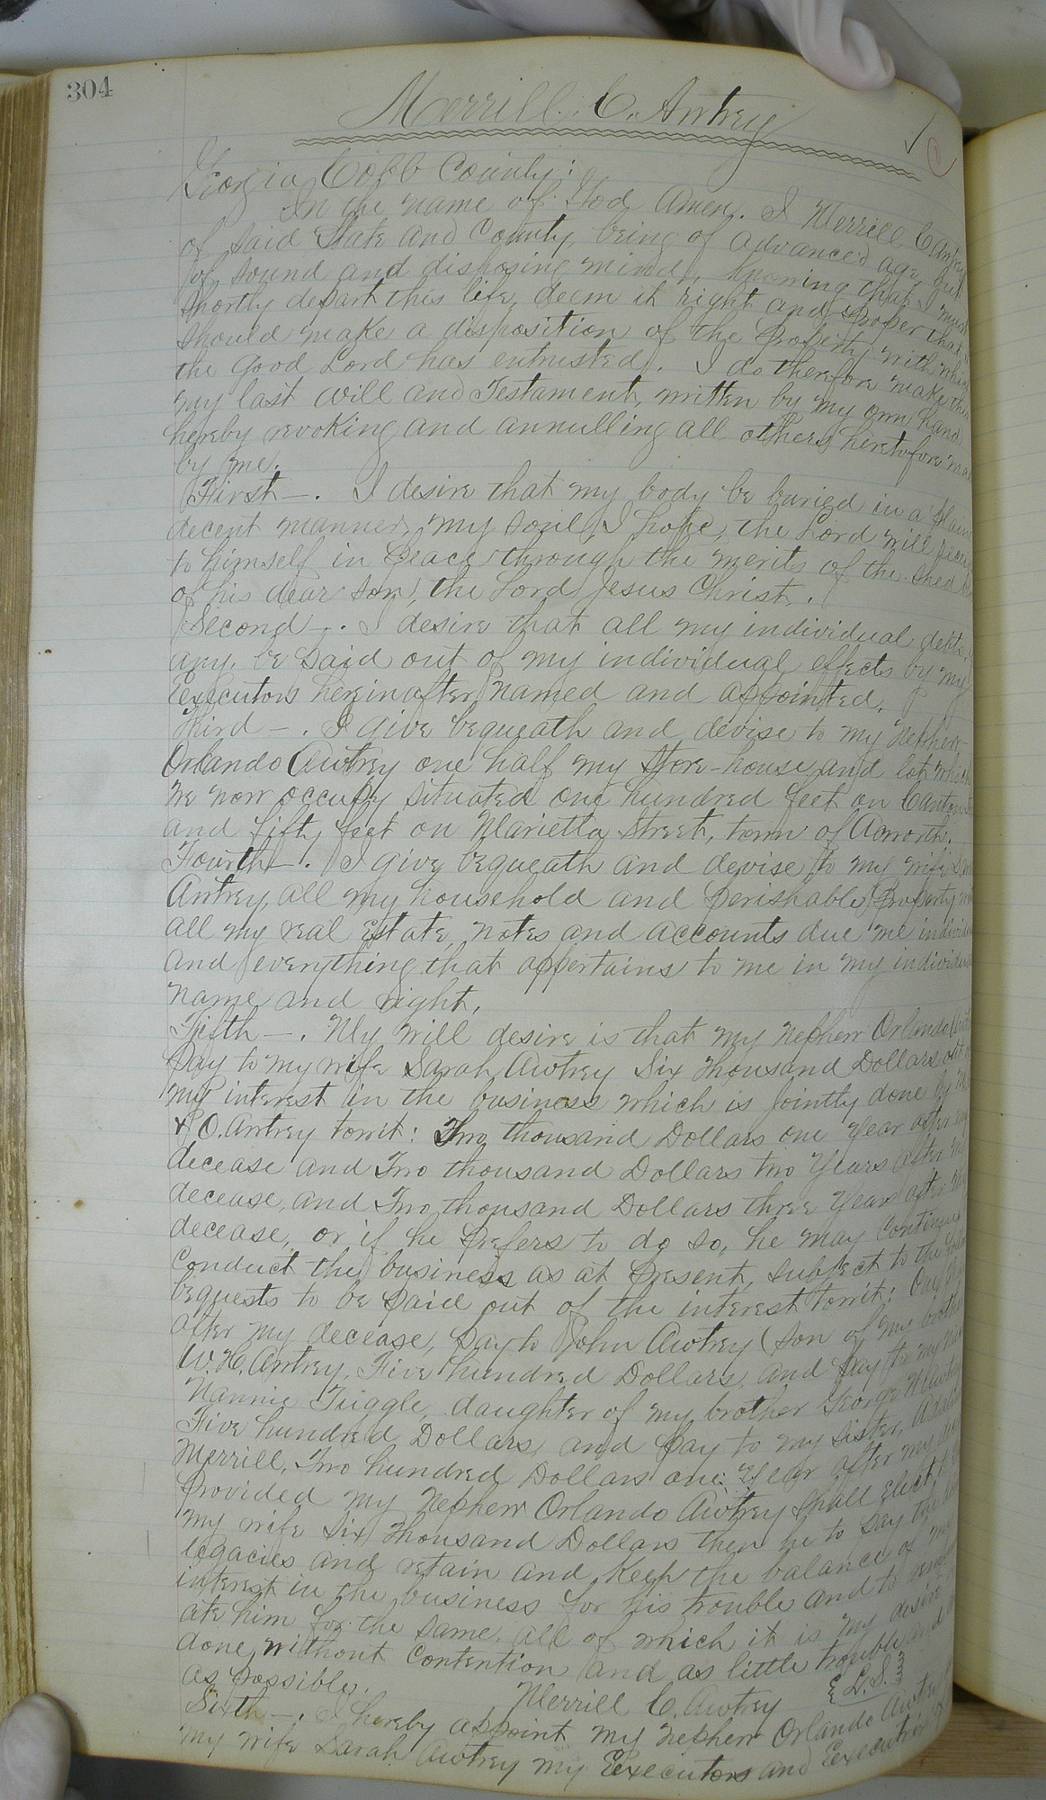 304
Merrill C. Awtrey
Georgia Cobb County:
In the name of God Amen. I Merrill C Awtrey
of said State and County, being of advanced age, but
of sound and disposing mind, knowing that I must
shortly depart this life, deem it right and proper that
should make a disposition of the property with which
the Good Lord has entrusted. I do therefore make this
my last will and Testament, written by my own hand
hereby revoking and annulling all others heretofore
by me.
First—. I desire that my body be buried in a plain
decent manner, my soul, I hope, the Lord will
to himself in peace through the merits of the shed
of his dear Son, the Lord Jesus Christ.
Second—. I desire that all my individual debts
any, be paid out of my individual effects by my
executors hereinafter named and appointed.
Third—. I give bequeath and devise to my Nephew
Orlando Awtrey one half my Store-house and lot which
we now occupy situated one hundred feet on Canton
and fifty feet on Marietta Street, town of Acworth.
Fourth—. I give bequeath and devise to my wife
Awtrey, all my household and perishable property,
all my real Estate, notes and accounts due me
and everything that appertains to me in my individual
name and right.
Fifth—. My will desire is that my Nephew Orlando
pay to my wife Sarah Awtrey Six Thousand Dollars out
my interest in the business which is jointly done by M
& O. Awtrey towit: Two thousand Dollars one Year after
decease and Two thousand Dollars two Years after my
decease, and Two thousand Dollars three Years after
decease, or if he prefers to do so, he may continue
conduct the business as at present, subject to the
bequests to be paid out of the interest towit: One
after my decease, pay to John Awtrey (son of my brother
W. H. Awtrey, Five hundred Dollars, and pay to my
Nannie Tuggle, daughter of my brother George
Five hundred Dollars, and pay to my sister,
Merrill, Two hundred Dollars one Year after my
provided my Nephew Orlando Awtrey shall elect
my wife Six Thousand Dollars then he to pay the
legacies and retain and keep the balance of my
interest in the business for his trouble and to
ate him for the same. all of which it is my desire
done without contention and as little trouble and
as possible.
Merrill C. Awtrey {L.S.}
Sixth—. I hereby appoint my nephew Orlando Awtrey
my wife Sarah Awtrey my Executors and